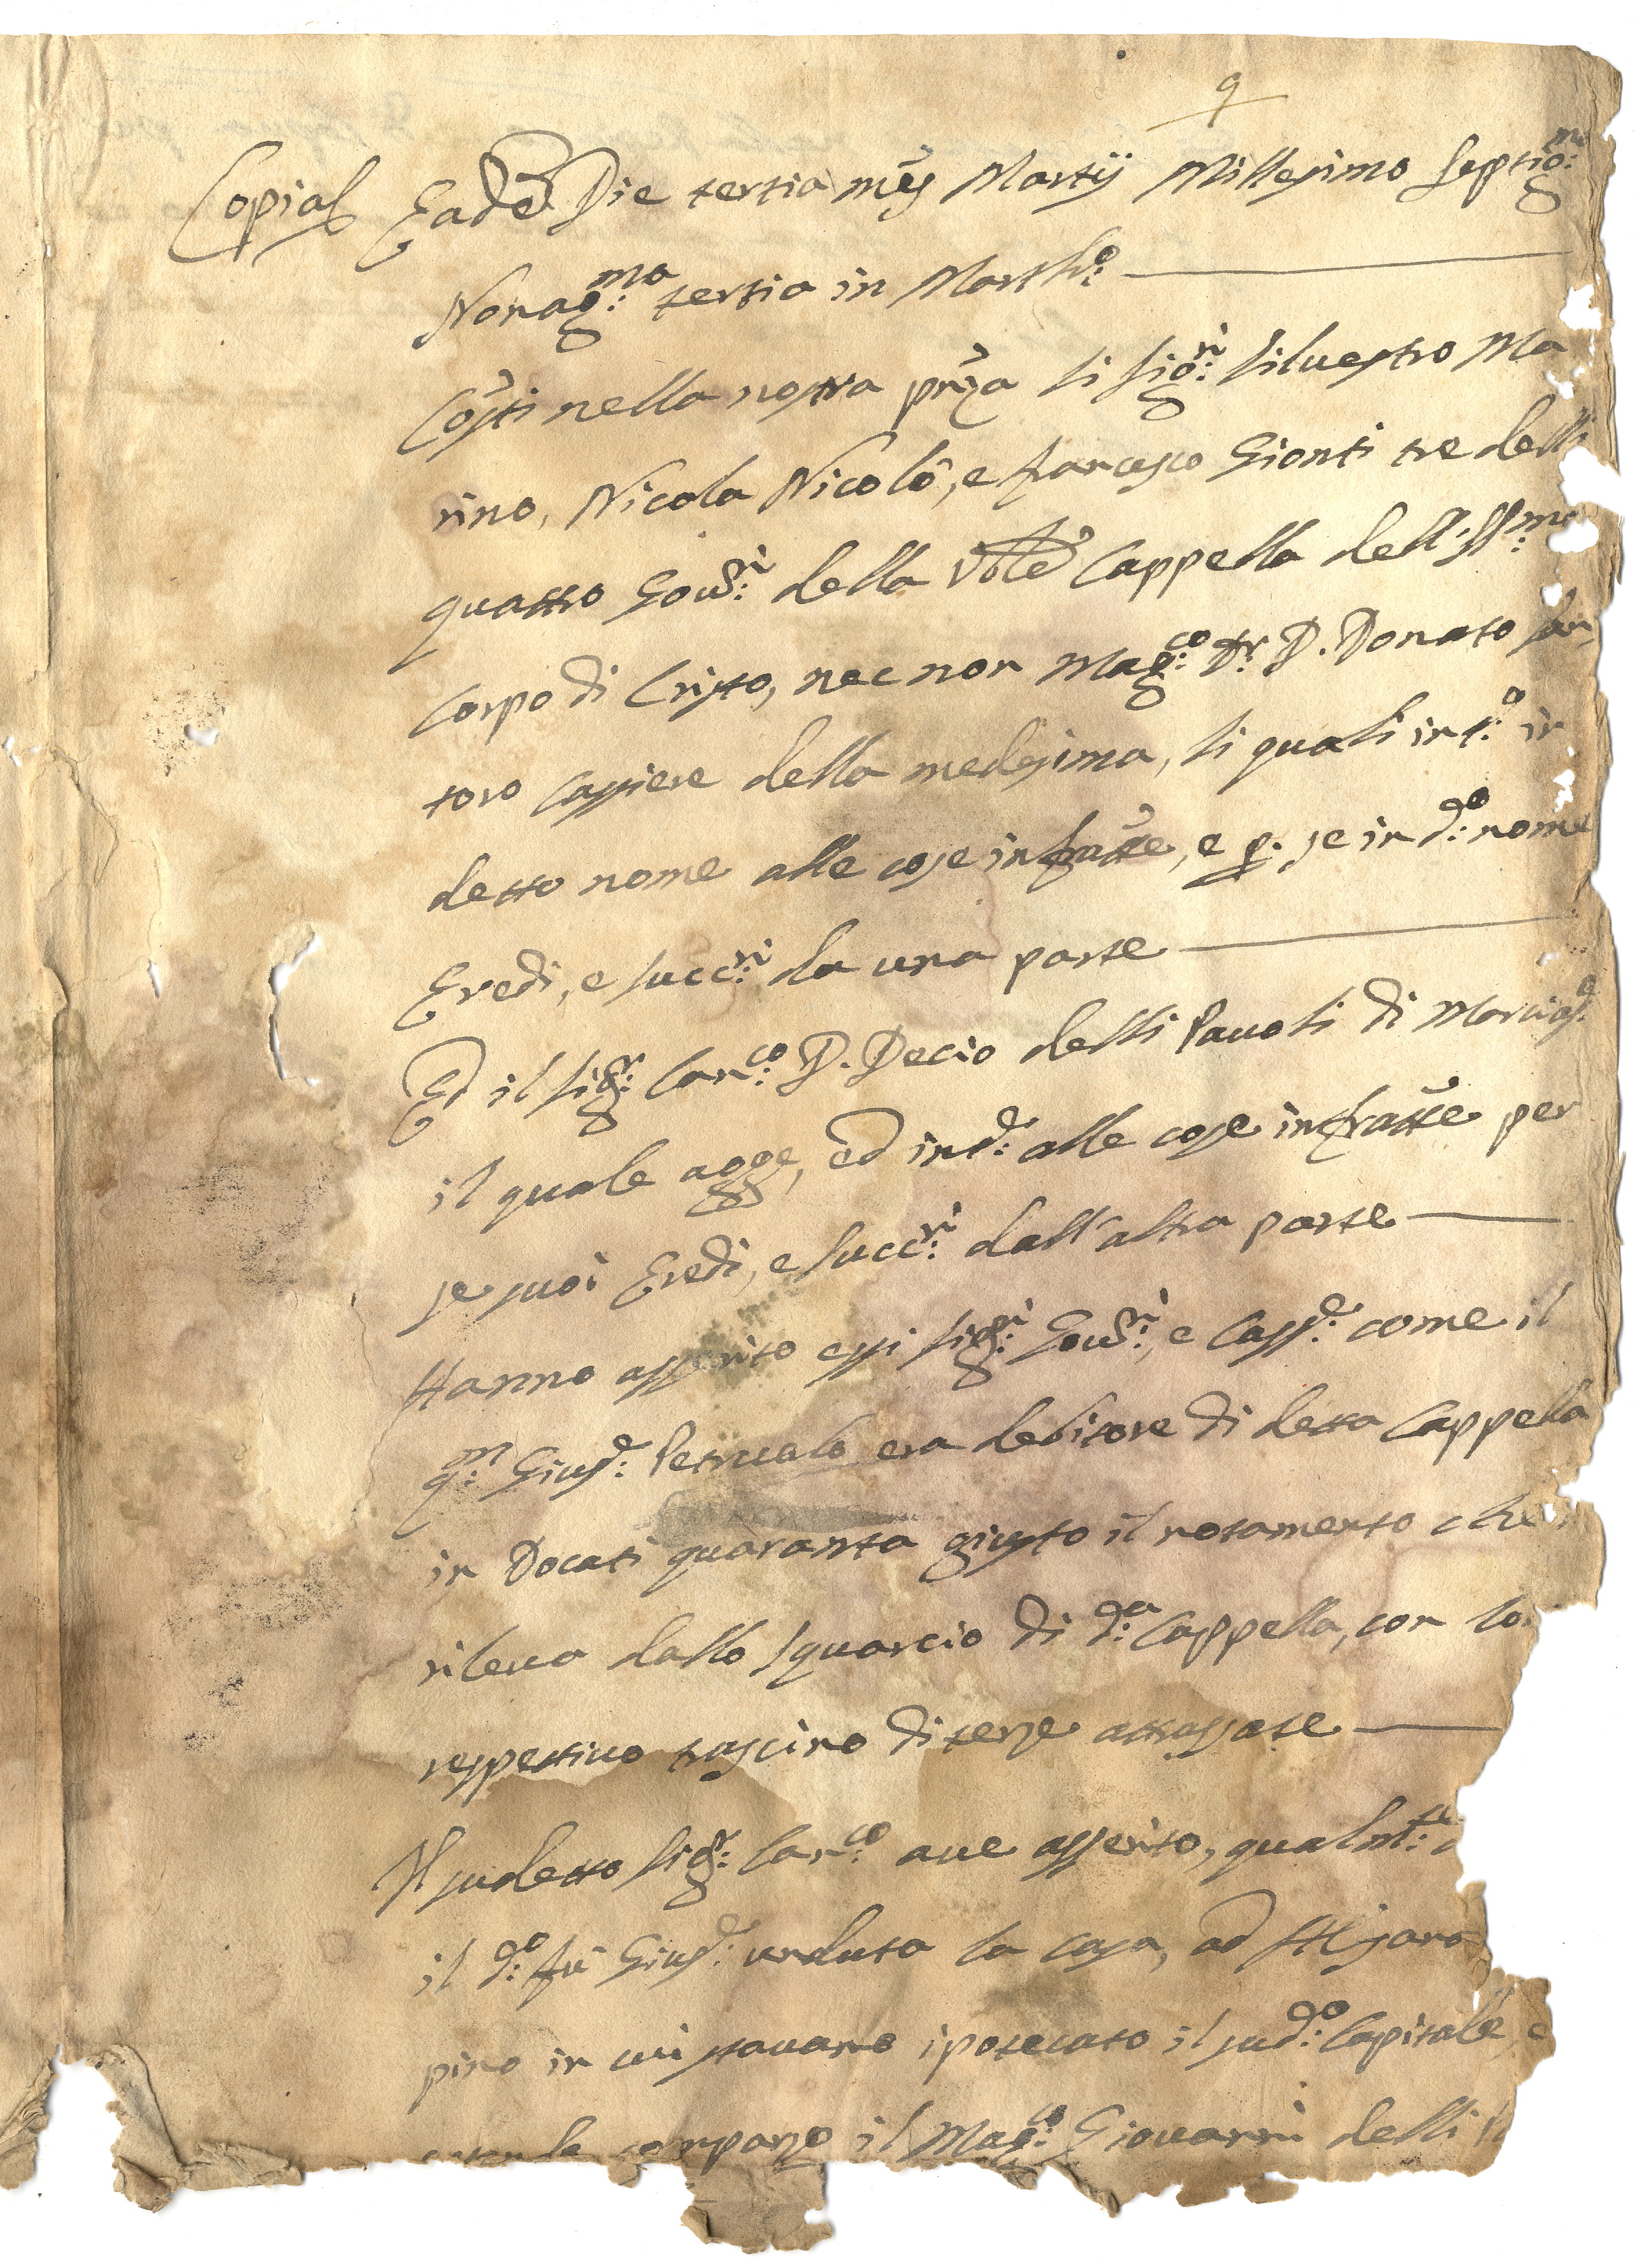 9
Copia Eadē Die tertia mēs Martij Millesimo Septig:mo
Nonag:ma tertia in Marth:o
Cōsti nella nostra prn̄za li Sig:ri Silvestro Ma
rino, Nicola Nicolò, e Francesco Gionti tre delli
quattro Gov:ri della Vble Cappella dell'SS:mo
Corpo di Cristo, nec non Mag:co Dr. D. Donato San
toro Cassiere della medesima, li quali int:o in
detto nome alle cose infratte, e p. se in d:o nome
Eredi, e Succ:ri da una parte
Ed il Sig:r Can:co D. Decio delli Pauoli di Marcia:e
il quale agge, ed int:e alle cose infratte per
se suoi Eredi, e Succ:ri dall'altra parte
Hanno asserito essi Sig:ri Gov:ri, e Cass:e come il
q:m Gius:e Petrualo era debitore di detta Cappella
in Docati quaranta giusto il notamento che
rileva dallo squarcio di d:a Cappella, con lo
respettivo trascino di terze attrassate
Il sudetto Sig:r Can:co ave asserito, qualm:te
il d:o fù Gius:e venduta la casa, ad
pino in cui stavano ipotecato il sud:o Capitale, e
comparzo il Mag:co Giovanni delli